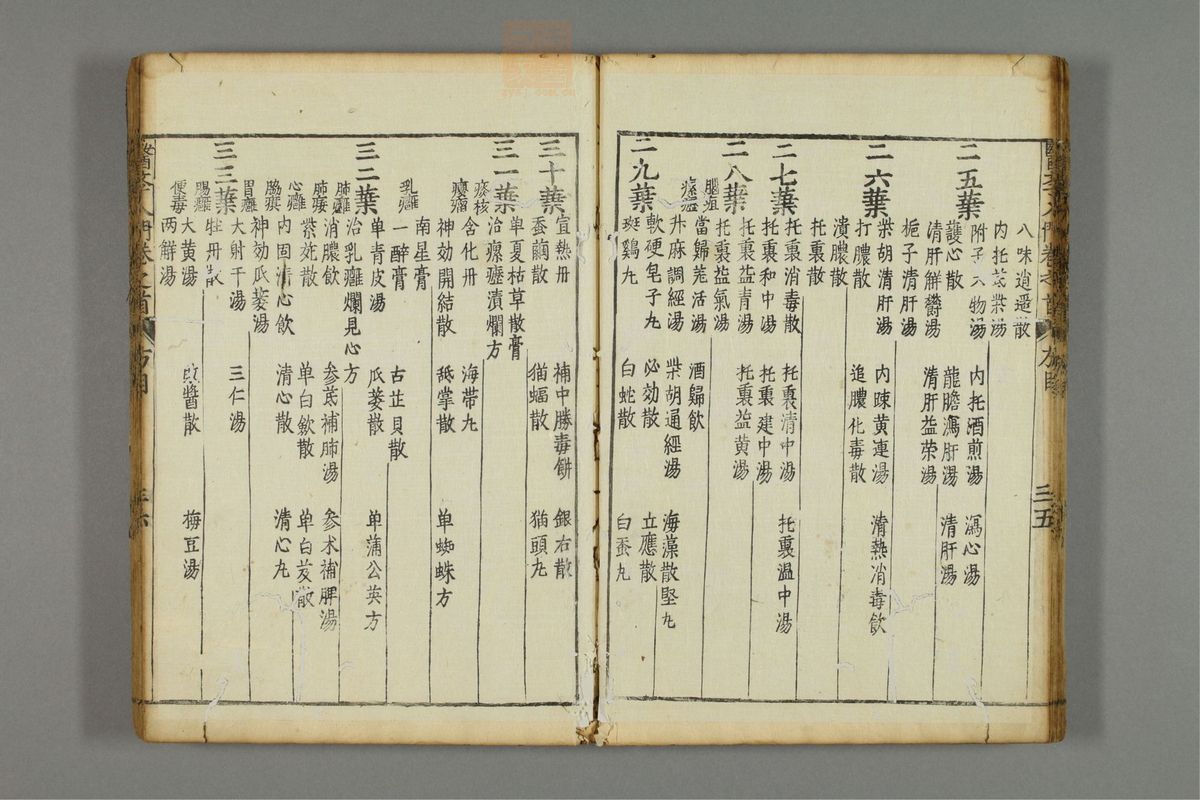 八味逍遥散
内托芪柴湯
附子六物湯 内托酒煎湯 瀉心湯
二五葉
護心散 龍膽瀉肝湯 清肝湯
清肝解鬱湯 清肝益荣湯
栀子清肝湯
二六葉
柴胡清肝湯 内踈黄連湯 清熱消毒飲
打膿散 追膿化毒散
潰膿散
托裏散
二七葉
托裏消毒散 托裏清中湯 托裏温中湯
托裏和中湯 托裏建中湯
托裏益青湯 托裏益黄湯
二八葉
托裏益氣湯
腦疽
當歸羗活湯 酒歸飲
瘰癧
升麻調經湯 柴胡通經湯 海藻散堅丸
軟硬皂子丸 必効散 立應散
二九葉
斑鷄丸 白蛇散 白蚕丸
三十葉
宣熱丹 補中勝毒餅 銀右散
蚕繭散 猫蝠散 猫頭丸
单夏枯草散膏
三一葉
治瘰癧潰爛方
痰核
含化丹 海帶丸
癭瘤
神効開結散 舐掌散 单蜘蛛方
南星膏
乳癰
一醉膏 古芷貝散
单青皮湯 瓜蒌散 单蒲公英方
三二葉
治乳癰爛見心方
肺癰
消膿飲 参芪補肺湯 参术補脾湯
肺痿
紫菀散 单白歛散 单白芨散
心癰
内固清心飲 清心散 清心丸
神効瓜蒌湯
胃癰
大射干湯 三仁湯
三三葉
牡丹散
腸癰
大黄湯 敗醬散 梅豆湯
便毒
两解湯
醫孛入門卷之首 方目 三五
醫孛入門卷之首 方目 三六